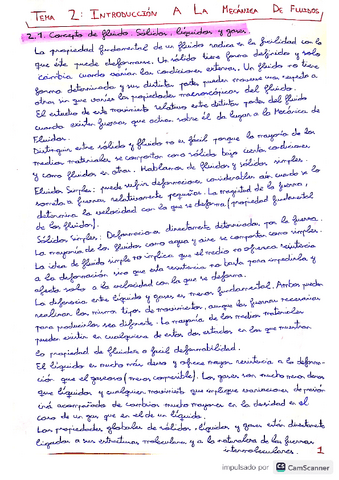 TEMA 2: INTRODUCCIÓN A LA MECÁNICA DE FLUIDOS
2.1. Concepto de fluido. Sólidos, líquidos y gases.
La propiedad fundamental de un fluido radica en la facilidad con la
que éste puede deformarse. Un sólido tiene forma definida y solo
cambia cuando varían las condiciones externas. Un fluido no tiene
forma determinada y sus distintas partes pueden moverse unas respecto a
otras sin que varíen las propiedades macroscópicas del fluido.
El estudio de este movimiento relativo entre distintas partes del fluido
cuando existen fuerzas que actúan sobre él da lugar a la Mecánica de
Fluidos.
Distinguir entre sólido y fluido no es fácil porque la mayoría de los
medios materiales se comportan como sólidos bajo ciertas condiciones
y como fluidos en otras. Hablamos de fluidos y sólidos simples.
Fluido Simple: puede sufrir deformaciones considerables aún cuando se lo
someta a fuerzas relativamente pequeñas. La magnitud de la fuerza,
determina la velocidad con la que se deforma (propiedad fundamental
de los fluidos).
Sólidos Simples: Deformaciones directamente determinadas por la fuerza.
La mayoría de los fluidos como agua y aire se comportan como simples.
La idea de fluido simple no implica que el medio no ofrezca resistencia
a la deformación sino que esta resistencia no basta para impedirla y
afecta solo a la velocidad con la que se deforma.
La diferencia entre líquido y gases es menos fundamental. Ambos pueden
realizar los mismos tipos de movimientos, aunque las fuerzas necesarias
para producirlos sea diferente. La mayoría de los medios materiales
pueden existir en cualquiera de estos dos estados en los que muestran
la propiedad de fluidez o fácil deformabilidad.
El líquido es mucho más denso y ofrece mayor resistencia a la deforma-
ción que el gaseoso (menos compresible). Los gases son mucho menos densos
que líquidos y cualquier movimiento que implique variaciones de presión
irá acompañado de cambios mucho mayores en la densidad en el
caso de un gas que en el de un líquido.
Las propiedades globales de sólidos, líquidos y gases están directamente
ligadas a sus estructuras moleculares y a la naturaleza de las fuerzas
intermoleculares.
1
impulsado por CS CamScanner